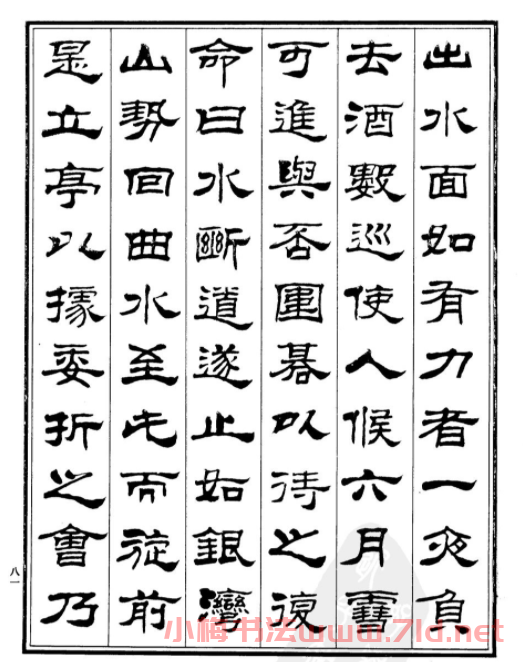 出水面如有力者一夜負
去酒數巡使人候六月雪
可進與否圍碁以待之復
命曰水斷道遂止如銀灣
山勢回曲水至此而旋前
是立亭以據委折之會乃
八一
小梅书法www.7ld.net